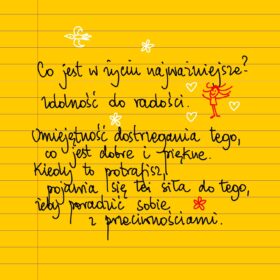 Co jest w życiu najważniejsze?
Zdolność do radości.
Umiejętność dostrzegania tego,
co jest dobre i piękne.
Kiedy to potrafisz,
pojawia się też siła do tego,
żeby poradzić sobie
z przeciwnościami.